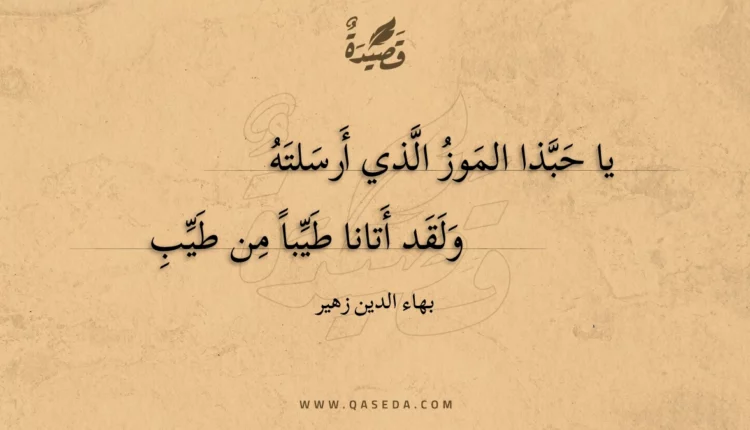 قَصِيدَةٌ
يا حَبَّذا المَوزُ الَّذي أَرسَلتَهُ
وَلَقَد أَتانا طَيِّباً مِن طَيِّبِ
بهاء الدين زهير
WWW.QASEDA.COM